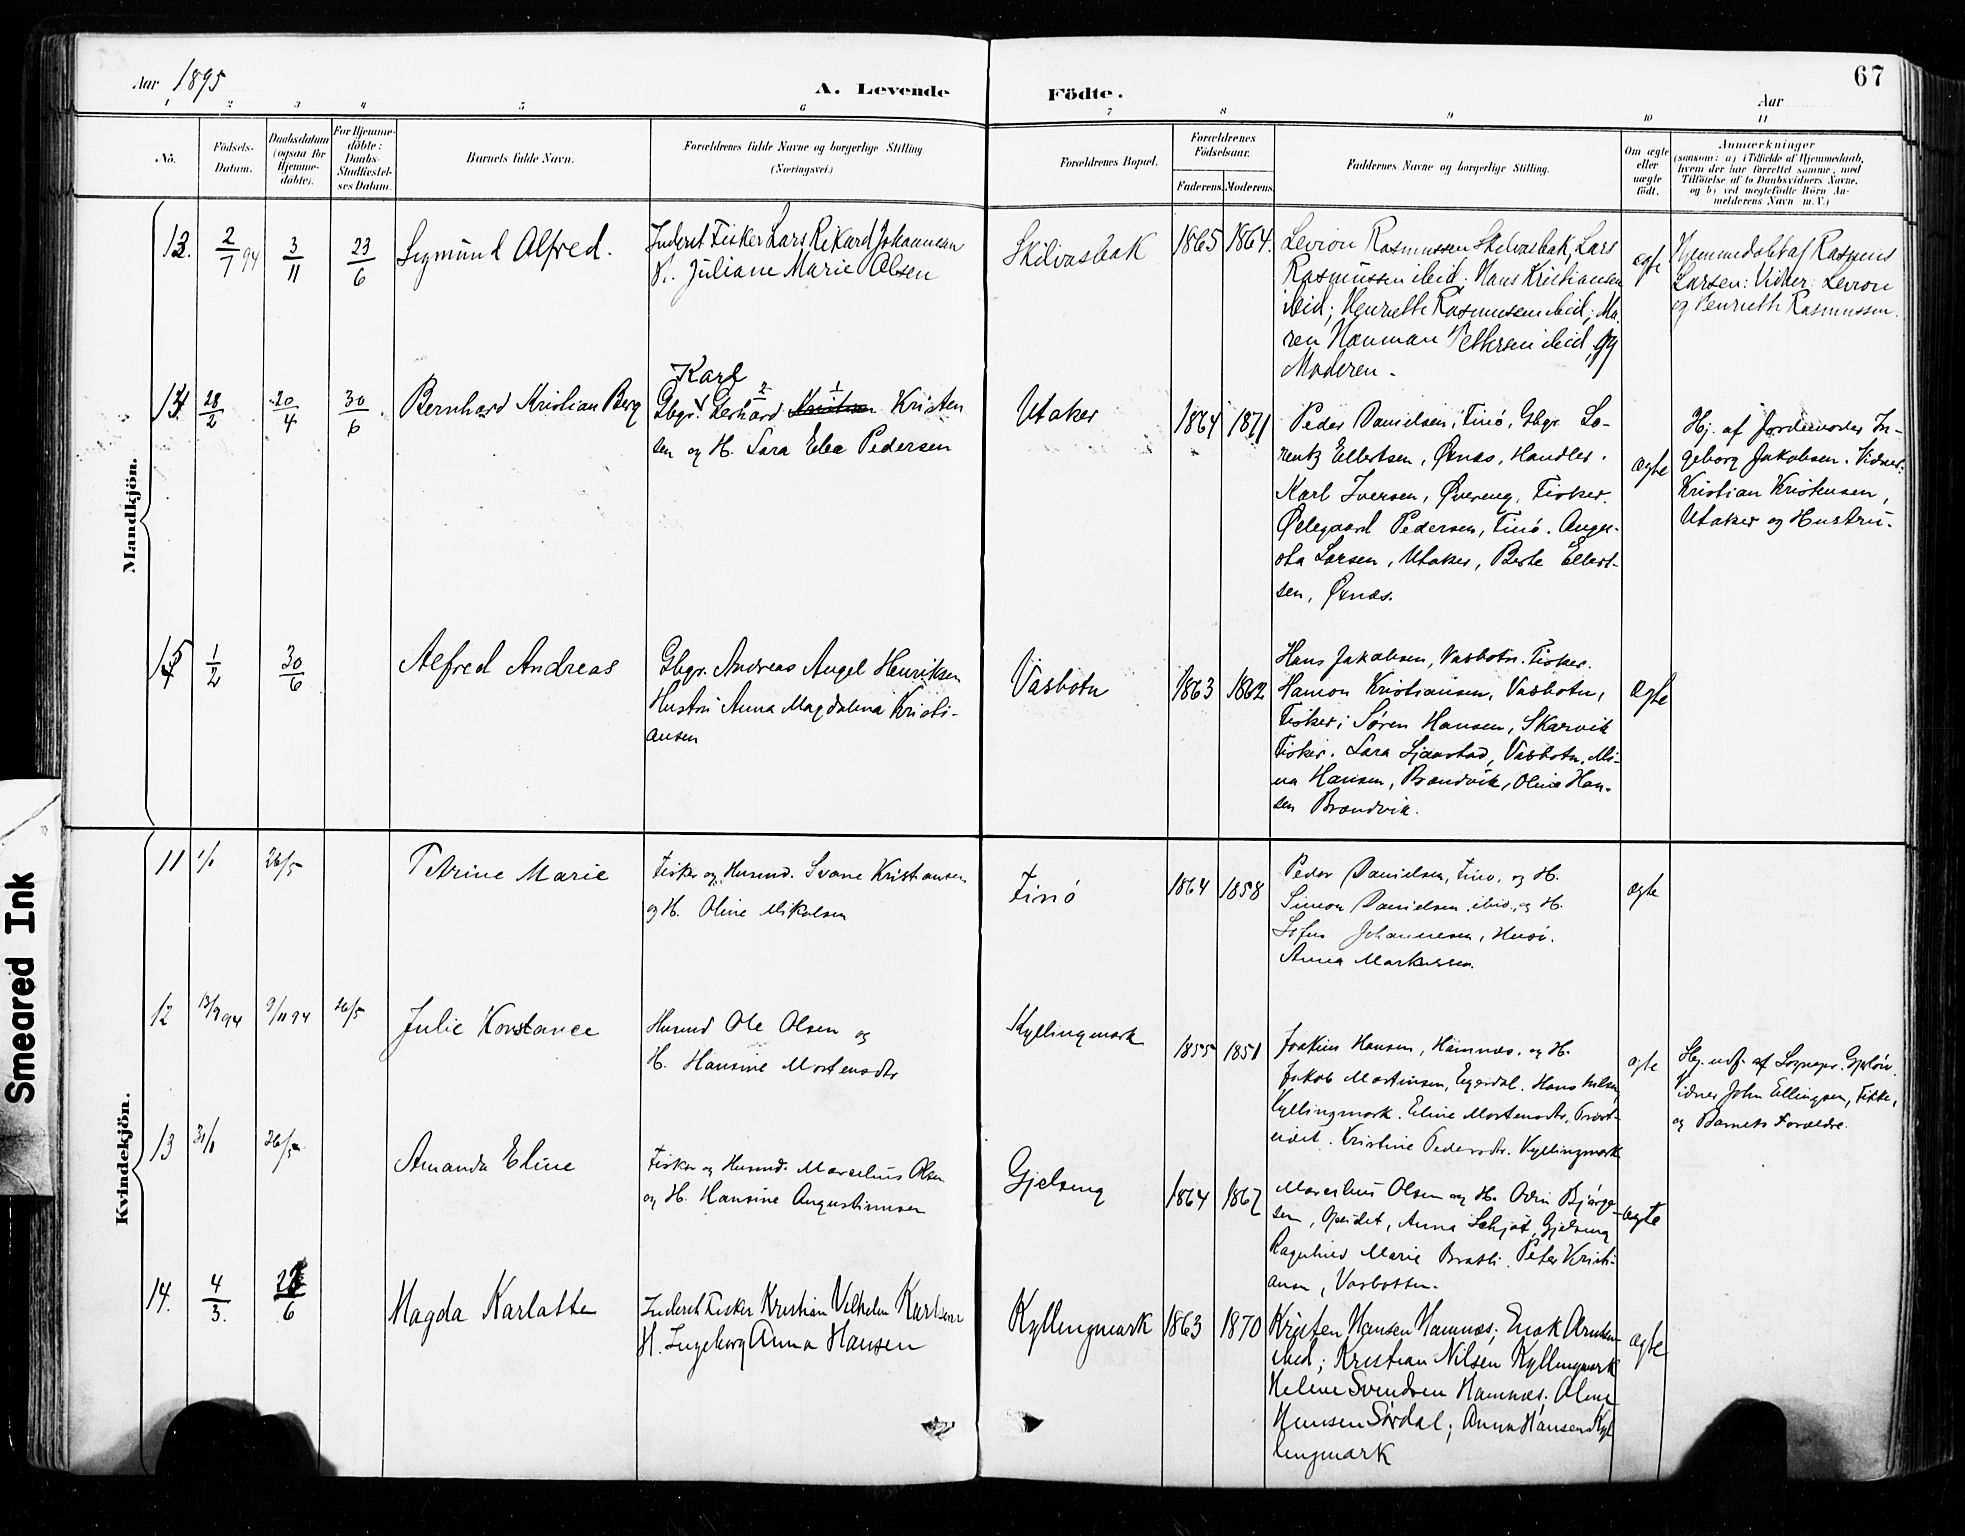 Aar 1895
A. Levende Födte.
Aar
67
1 2 3 4 5 6 7 8 9 10 11
No.
Födsels-
Datum.
Daabsdatum
(ogsaa for
Hjemme-
döbte).
For Hjemme-
döbte:
Daabs-
Stadfæstel-
ses Datum.
Barnets fulde Navn.
Forældrenes fulde Navne og borgerlige Stilling
(Næringsvei.)
Forældrenes Bopæl.
Forældrenes
Födselsaar.
Faderens. Moderens.
Faddernes Navne og borgerlige Stilling.
Om ægte
eller
uægte
födt.
Anmærkninger
(saasom: a) i Tilfælde af Hjemmedaab,
hvem der har forrettet samme, med
Tilföielse af to Daabsvidners Navne,
og b) ved uægtefödte Börn An-
melderens Navn m. V.)
Mandkjön.
13. 2/7 94 3/11 23/6
Sigmund Alfred.
Inderst Fisker Lars Rikard Johannesen
H. Juliane Marie Olsen
Skilvasbak
1865 1864.
Levion Rasmussen Skilvasbak, Lars
Rasmussen ibid; Hans Kristiansen
ibid; Henriette Rasmussen ibid; Ma-
ren Nauman Pettersen ibid og
Moderen.
ægte
Hjemmedøbt af Rasmus
Larsen: Vidner: Levion
og Henriette Rasmussen.
14. 28/2 20/4 30/6
Bernhard Kristian Berg
Karl
Gbgr. Gerhard Kristen
sen og H. Sara Elea Pedersen
Utaker
1864 1871
Peder Danielsen, Finö, Gbgr. Lo-
rentz Ellertsen, Örnes, Handler.
Karl Iversen, Övereng, Fisker.
Ödegaard Pedersen, Finö. Augu-
sta Larsen, Utaker, Berte Ellert-
sen, Örnæs.
ægte
Hj. af Jordemoder In-
geborg Jakobsen. Vidner:
Kristian Kristensen,
Utaker og Hustru.
15 1/2 30/6
Alfred Andreas
Gbgr. Andreas Angel Henriksen
Hustru Anna Magdalena Kristi-
ansen
Vasbotn
1863 1862
Hans Jakobsen, Vasbotn. Fisker.
Hamon Kristiansen, Vasbotn,
Fisker; Søren Hansen, Skarvik
Fisker. Sara Sjaavstad, Vasbotn, Mi-
na Hansen, Brandvik, Oline Han-
sen Brandvik.
ægte
Kvindekjön.
11 1/1 26/5
Petrine Marie
Fisker og Husmd. Svane Kristiansen
og H. Oline Mikalsen
Finö
1864 1858
Peder Danielsen, Finö, og H.
Simon Danielsen, ibid., og H.
Sofus Johannesen, Husö.
Anna Markussen.
ægte
12 13/9 94 9/11 94 26/5
Julie Konstance
Husmd Ole Olsen og
H. Hansine Mortensdtr
Kyllingmark
1855 1851
Joakim Hansen, Hamnæs. og H.
Jakob Mortinsen, Egerdal. Hans Nilsen,
Kyllingmark. Eline Mortensdtr,
eidet. Kristine Pedersdtr. Kyllingmark
ægte
Hj. udf. af Sognepr.
Vidner John Ellingsen,
og Barnets Forældre.
13 31/1 26/5
Amanda Eline
Fisker og Husmd. Marselius Olsen
og H. Hansine Augustinussen
Gjelseng
1864 1867
Marselius Olsen og H. Odin Bjørge-
sen, Opeidet, Anna Schjöt, Gjelseng
Ragnhild Marie Bratli. Peter Kristi-
ansen, Vasbotten.
ægte
14. 4/3. 23/6
Magda Karlotte
Inderst Fisker Kristian Vilhelm Karlsen
H. Ingeborg Anna Hansen
Kyllingmark
1863 1870
Kristen Hansen Hamnæs; Enok Arntsen
ibid; Kristian Nilsen Kyllingmark
Helene Svendsen Hamnæs; Oline
Hansen Sørdal; Anna Hansen Kyl
lingmark
ægte
Smeared Ink